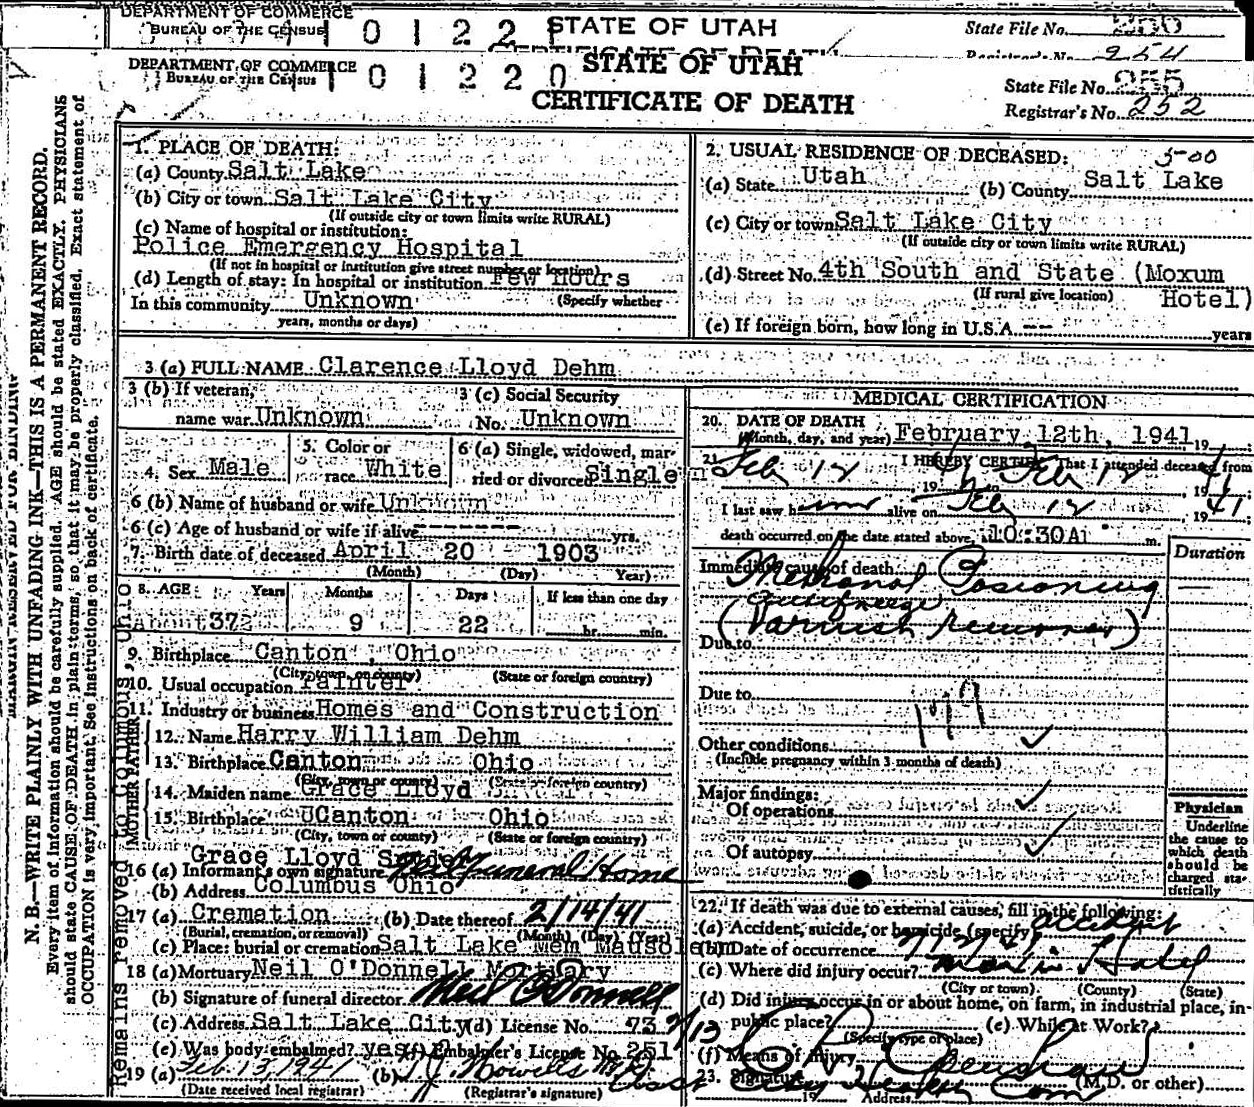 DEPARTMENT OF COMMERCE
BUREAU OF THE CENSUS
0 1 2 2 1 STATE OF UTAH
CERTIFICATE OF DEATH
State File No.
Registrar's No. 254
DEPARTMENT OF COMMERCE
BUREAU OF THE CENSUS
0 1 2 2 0 STATE OF UTAH
CERTIFICATE OF DEATH
State File No. 255
Registrar's No. 252
N. B.—WRITE PLAINLY WITH UNFADING INK—THIS IS A PERMANENT RECORD.
Every item of information should be carefully supplied. AGE should be stated EXACTLY. PHYSICIANS
should state CAUSE OF DEATH in plain terms, so that it may be properly classified. Exact statement of
OCCUPATION is very important. See instructions on back of certificate.
Remains removed to Columbus, Ohio
1. PLACE OF DEATH:
(a) County Salt Lake
(b) City or town Salt Lake City
(If outside city or town limits write RURAL)
(c) Name of hospital or institution:
Police Emergency Hospital
(If not in hospital or institution give street number or location)
(d) Length of stay: In hospital or institution Few Hours
In this community Unknown (Specify whether
years, months or days)
2. USUAL RESIDENCE OF DECEASED: 5-00
(a) State Utah (b) County Salt Lake
(c) City or town Salt Lake City
(If outside city or town limits write RURAL)
(d) Street No. 4th South and State (Moxum
(If rural give location) Hotel)
(e) If foreign born, how long in U.S.A. -- years
3 (a) FULL NAME Clarence Lloyd Dehm
3 (b) If veteran, name war Unknown
3 (c) Social Security No. Unknown
4. Sex Male
5. Color or race White
6 (a) Single, widowed, married or divorced Single
6 (b) Name of husband or wife Unknown
6 (c) Age of husband or wife if alive ------- yrs.
7. Birth date of deceased April 20 1903
(Month) (Day) (Year)
8. AGE: Years Months Days If less than one day
About 37 9 22 hr. min.
9. Birthplace Canton, Ohio
(City, town, or county) (State or foreign country)
10. Usual occupation Painter
11. Industry or business Homes and Construction
FATHER
12. Name Harry William Dehm
13. Birthplace Canton Ohio
(City, town or county) (State or foreign country)
MOTHER
14. Maiden name Grace Lloyd
15. Birthplace Canton Ohio
(City, town or county) (State or foreign country)
Grace Lloyd
16 (a) Informant's own signature Per Funeral Home
(b) Address Columbus Ohio
17 (a) Cremation (b) Date thereof 2/14/41
(Burial, cremation, or removal) (Month) (Day) (Year)
(c) Place: burial or cremation Salt Lake Mem Mausoleum
18 (a) Mortuary Neil O'Donnell Mortuary
(b) Signature of funeral director Neil O'Donnell
(c) Address Salt Lake City (d) License No. 73
(e) Was body embalmed? yes (f) Embalmer's License No. 251
19 (a) Feb. 13, 1941 (b)
(Date received local registrar) (Registrar's signature)
MEDICAL CERTIFICATION
20. DATE OF DEATH
(Month, day, and year) February 12th, 1941, 19
21. I HEREBY CERTIFY That I attended deceased from
Feb 12, 19 41 to Feb 12, 1941
I last saw him alive on Feb 12, 1941.
death occurred on the date stated above, 10:30A m.
Duration
Immediate cause of death
Methonal Posioning
antifreeze
(Varnish Remover)
Due to
Due to
Other conditions
(Include pregnancy within 3 months of death)
Major findings:
Of operations
Of autopsy
Physician
Underline
the cause to
which death
should be
charged sta-
tistically
22. If death was due to external causes, fill in the following:
(a) Accident, suicide, or homicide (specify) accident
(b) Date of occurrence
(c) Where did injury occur? Hotel
(City or town) (County) (State)
(d) Did injury occur in or about home, on farm, in industrial place, in
public place? (e) While at Work?
(Specify type of place)
(f) Means of injury
23. Signature (M.D. or other)
19 Address